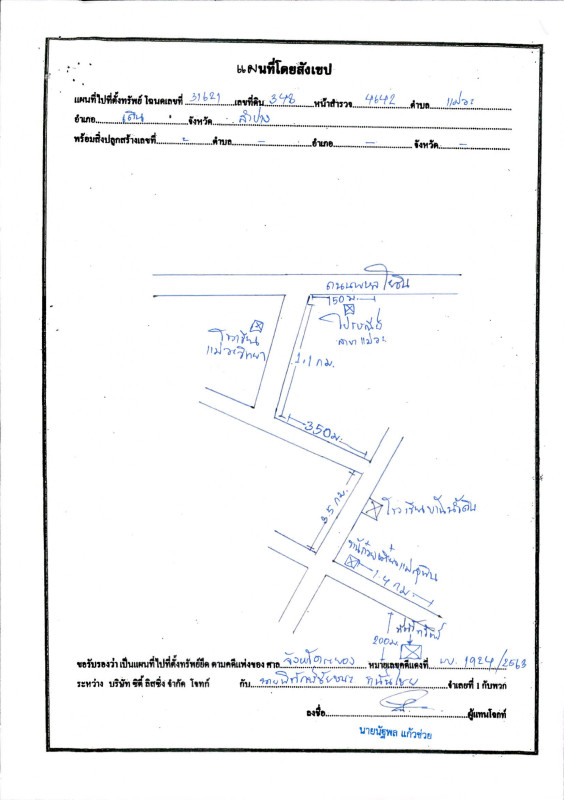 แผนที่โดยสังเขป
แผนที่ไปที่ตั้งทรัพย์ โฉนดเลขที่ 31621 เลขที่ดิน 348 หน้าสำรวจ 4642 ตำบล แม่วะ
อำเภอ เถิน จังหวัด ลำปาง
พร้อมสิ่งปลูกสร้างเลขที่ - ตำบล - อำเภอ - จังหวัด -
ถนนพหลโยธิน
150 ม.
ไปรษณีย์
สาขา แม่วะ
โรงเรียน
แม่วะวิทยา
1.1 กม.
350 ม.
3.5 กม.
โรงเรียน
1.4 กม.
ที่ตั้งทรัพย์
200 ม.
ขอรับรองว่า เป็นแผนที่ไปที่ตั้งทรัพย์ยึด ตามคดีแพ่งของ ศาล จังหวัดระยอง หมายเลขคดีแดงที่ ผบ. 1924/2563
ระหว่าง บริษัท ซิตี้ ลิสซิ่ง จำกัด โจทก์ กับ จำเลยที่ 1 กับพวก
ลงชื่อ ผู้แทนโจทก์
นายนัฐพล แก้วช่วย